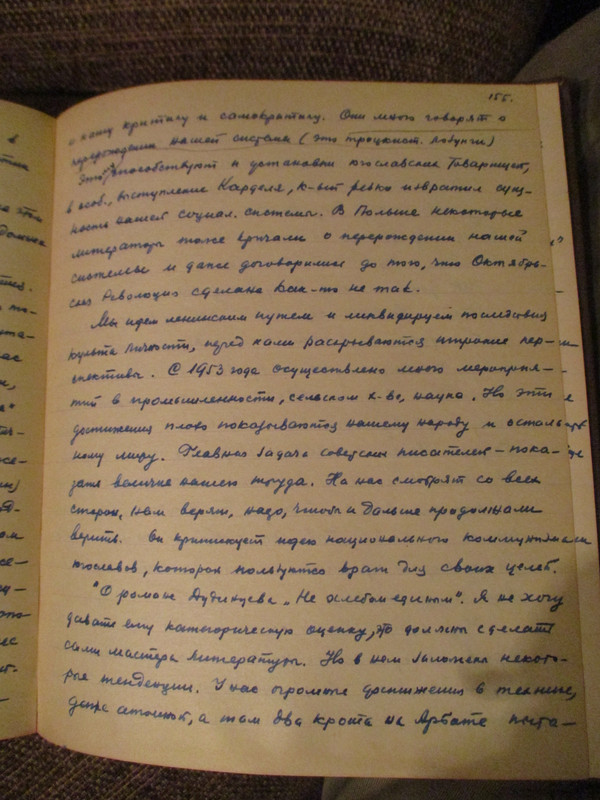 155.
и нашу критику и самокритику. Они много говорят о
перерождении нашей системы (это троцкист. лозунги)
Этому способствуют и установки югославских товарищей,
в особ., выступление Карделя, к-рый резко извратил сущ-
ность нашей социал. системы. В Польше некоторые
литераторы тоже кричали о перерождении нашей
системы и даже договорились до того, что Октябрь-
ская Революция сделана как-то не так.
Мы идем ленинским путем и ликвидируем последствия
культа личности, перед нами раскрываются широкие пер-
спективы. С 1953 года осуществлено много мероприя-
тий в промышленности, сельском х-ве, науке. Но эти
достижения плохо показываются нашему народу и осталь-
ному миру. Главная задача советских писателей - пока-
зать величие нашего труда. На нас смотрят со всех
сторон, нам верят, надо, чтобы и дальше продолжали
верить. Он критикует идею национального коммунизма
югославов, которой пользуются враги для своих целей.
"О романе Дудинцева „Не хлебом единым". Я не хочу
давать ему категорическую оценку, это должны сделать
сами мастера литературы. Но в нем заложены некото-
рые тенденции. У нас огромные достижения в технике,
даже атомной, а там два крота на Арбате пыта-